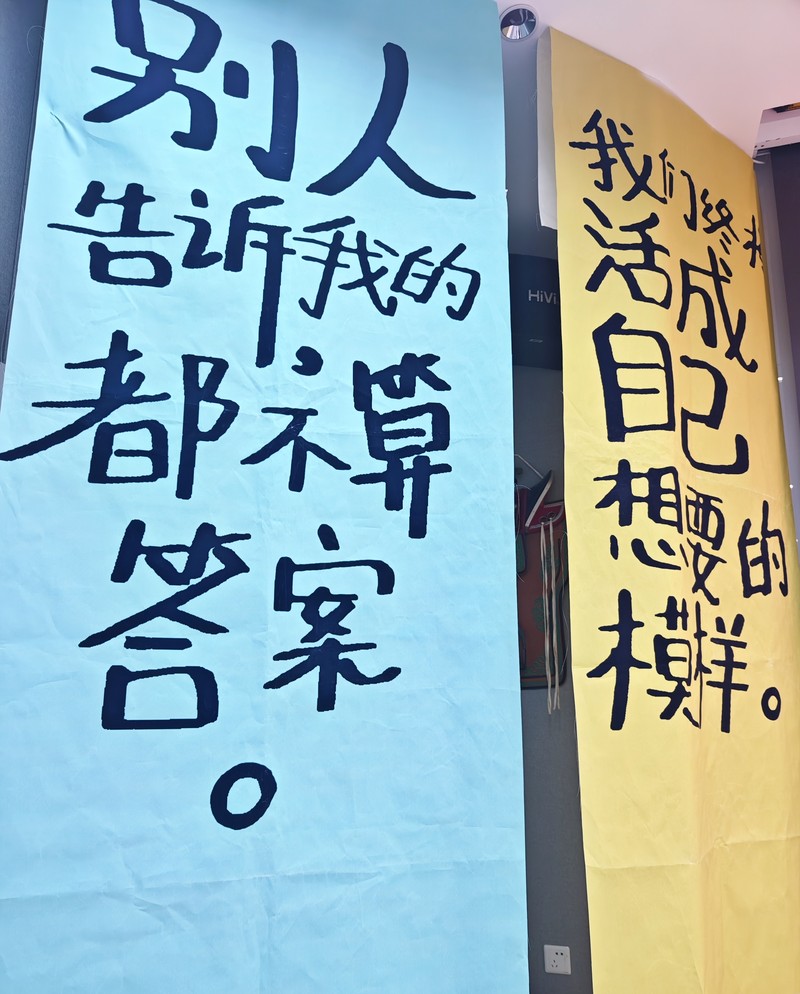 别人
告诉我的,
都不算
答案。
HiVi
我们终将
活成
自己
想要的
模样。